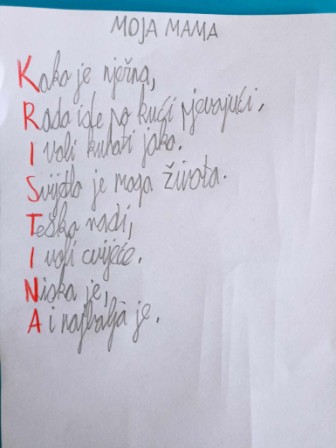 MOJA MAMA
Kako je nježna,
Rada ide po kući pjevajući.
I Voli kuhati jako.
Svijetlo je moga života.
Teško radi,
I voli cvijeće.
Niska je,
A i najbolja je.